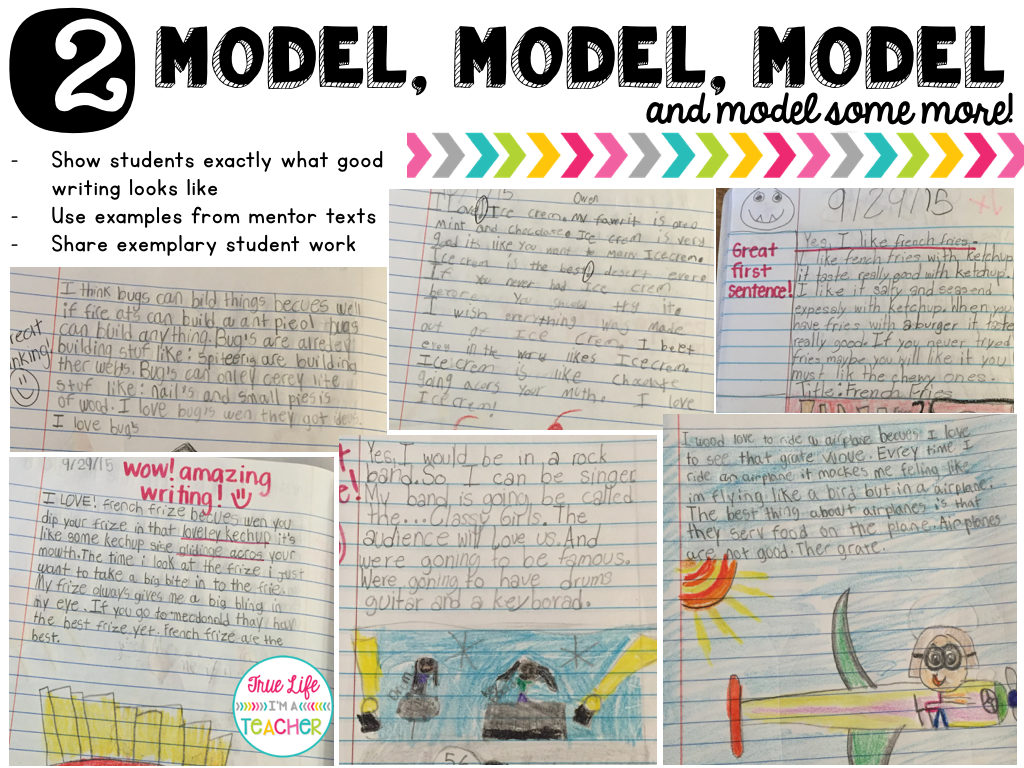 2 MODEL, MODEL, MODEL
and model some more!
- Show students exactly what good
writing looks like
- Use examples from mentor texts
- Share exemplary student work
I think bugs can bild things becues well
if fire ats can build a ant pieol bugs
can build anything. Bug's are alredey
building stuf like: spiteers are building
ther webs. Bug's can onley cerey lite
stuf like: nail's and small piesis
of wood. I love bug's wen they got
I love bug's
Owen
I love Ice crem. My faverit is oreo
mint and chocolate. Ice crem is very
good its like you want to marry Icecrem.
Ice crem is the best desert evere
If you never had Ice crem
before. You should try it.
I wish everything was made
out of Ice crem. I bet
even in the world likes Icecrem.
Icecrem is like chocolate
going acors your muth. I love
Icecrem!
9/29/15
Great
first
sentence!
Yes, I like french fries.
I like fench fries with ketchup
it taste really good with ketchup.
I like it salty and seasend
expessly with ketchup. When you
have fries with a burger it taste
really good. If you never tryed
fries maybe you will like it you
must lik the chewy ones.
Title: French fries
9/29/15 wow! amazing
writing!
I LOVE! french frize becues wen you
dip your frize in that loveley kechup it's
like some kechup sise glidinge acros your
mouth. The time i look at the frize i just
want to take a big bite in to the fries
My frize always gives me a big bling in
my eye. If you go to mecdonald thay hav
the best frize yet. French frize are the
best.
True Life
I'M A
TEACHER
Yes, I would be in a rock
band. So I can be singer
My band is going be called
the... Classy Girls. The
audience will love us. And
were gonning to be famous.
Were gonning to have drums
guitar and a keyborad.
I wood love to ride a airplane becues I love
to see that grate viwue. Evrey time I
ride an airplane it mackes me feling like
im flying like a bird but in a airplane.
The best thing about airplanes is that
they serv food on the plane. Airplanes
are not good. Ther grate.